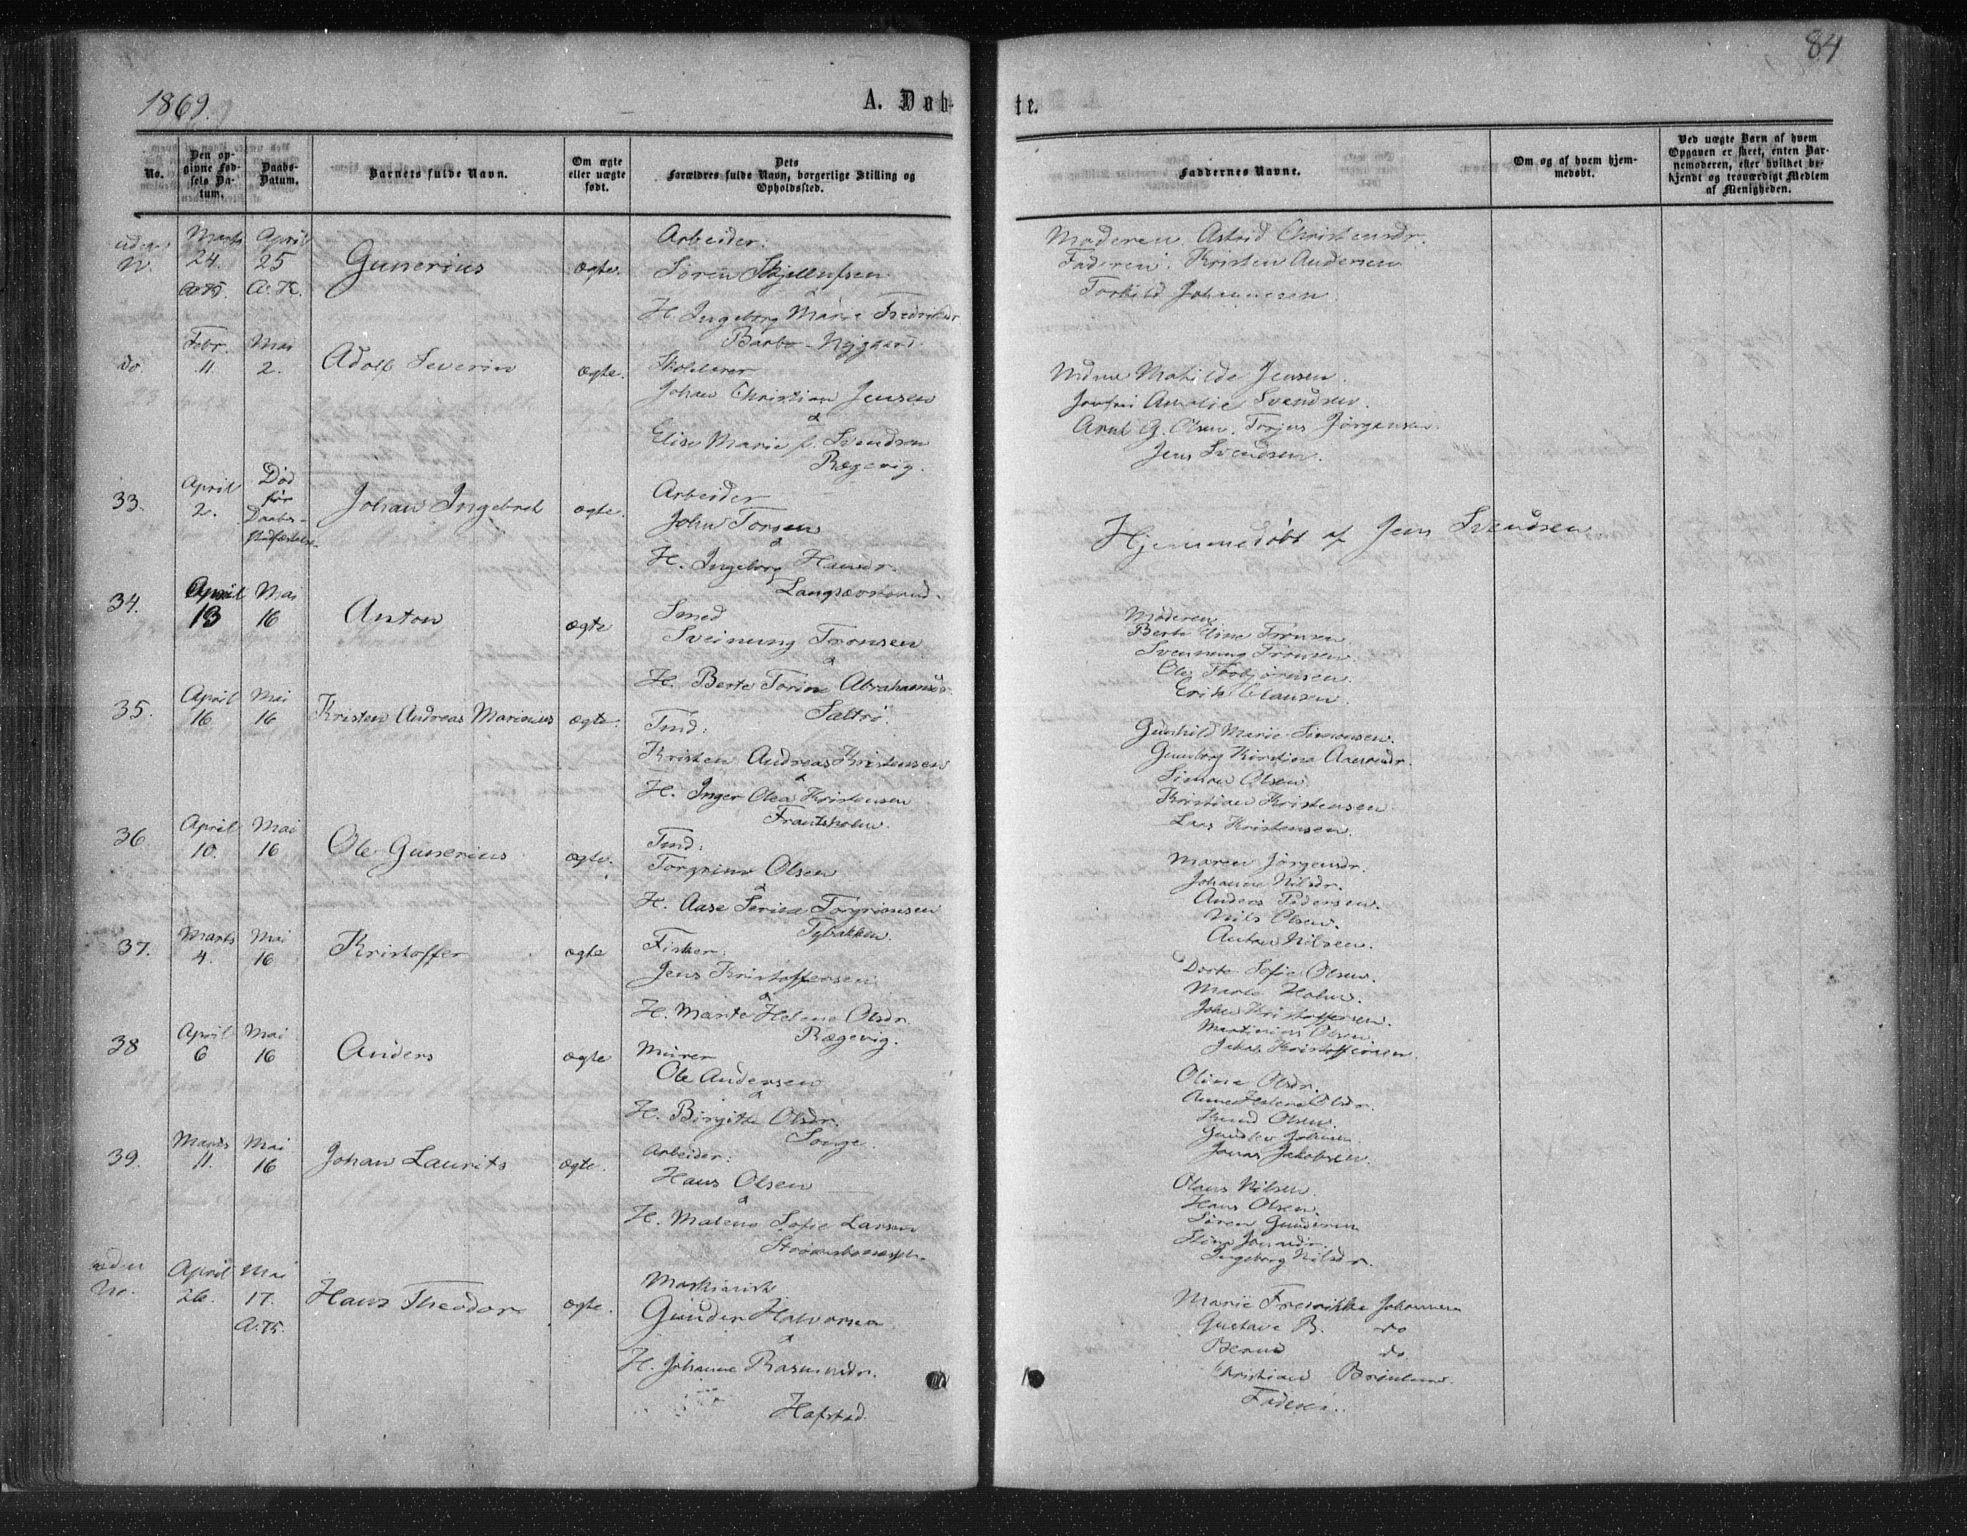 84
1869.
A. Døb-
te.
No.
Den op-
givne Fød-
sels Da-
tum.
Daabs-
Datum.
Barnets fulde Navn.
Om ægte
eller uægte
født.
Dets
Forældres fulde Navn, borgerlige Stilling og
Opholdssted.
Faddernes Navne.
Om og af hvem hjem-
medøbt.
Ved uægte Barn af hvem
Opgaven er skeet, enten Bar-
nemoderen, eller hvilket be-
kjendt og troværdigt Medlem
af Menigheden.
uden
N.
Marts
24.
April
25
A.K.
Gunerius
ægte.
Arbeider.
Søren Skjellufsen
&
H. Ingeborg Marie Fredriksdr
Barbo-Nygaard.
Moderen. Astrid Christensdr.
Faderen. Kristen Andersen
Torkild Johannesen
do.
Febr.
11.
Mai
2.
Adolf Severin
ægte.
Skolelærer
Johan Christian Jensen
&
Elise Marie f. Svendsen
Rægevig.
Mathilde Jensen.
Jomfru Amalie Svendsen.
Arnt G. Olsen. Torjus Jørgensen.
Jens Svendsen.
33.
April
2.
Død
før
Daabs-
Stadfæstelse
Johan Ingebret
ægte.
Arbeider
John Torsen
&
H. Ingeborg Hansdr.
Hjemmedøbt af Jens Svendsen
34.
April
13
Mai
16
Anton
ægte
Smed
Sveinung Tronsen
&
H. Berte Torine Abrahamsdr.
Saltrø
Moderen
Berte Tronsen
Svennung Tronsen
Ole Thorbjørnsen.
Erik Clausen.
35.
April
16
Mai
16
Kristen Andreas Marinus
ægte.
Tmd:
Kristen Andreas Kristensen
&
H. Inger Olea Kristensen
Frantsholm.
Gunhild Marie Simonsen.
Gunborg Kirstine Aanonsdr.
Simon Olsen
Kristian Kristensen
Lars Kristensen.
36
April
10.
Mai
16
Ole Gunerius
ægte.
Tmd:
Torgrim Olsen
&
H. Aase Serine Torgrimsen
Tybakken.
Maren Jørgensdr.
Johanne Nilsdr.
Anders Pedersen.
Nils Olsen.
Anton Nilsen.
37.
Marts
4.
Mai
16
Kristoffer
ægte
Fisker.
Jens Kristoffersen
&
H. Marte Helene Olsdr.
Rægevig.
Dorte Sofie Olsen.
Marte Holm.
Johan Kristoffersen.
Martinius Olsen
Jakob Kristoffersen.
38
April
6
Mai
16
Anders
ægte
Murer
Ole Andersen
&
H. Birgitte Olsdr.
Songe.
Oline Olsdr.
Anne Helene Olsdr.
Knud Olsen.
Gunder Johnsen
Jonas Jakobsen.
39.
Marts
11.
Mai
16
Johan Laurits
ægte.
Arbeider.
Hans Olsen
&
H. Malene Sofie Larsen
Olaus Nilsen.
Hans Olsen.
Søren Gundersen
Ingeborg Nilsdr.
uden
No.
April
26.
Mai
17.
A.K.
Hans Theodor
ægte.
Maskinist
Gunder Halvorsen
&
H. Johanne Rasmusdr.
Hafstad
Marie Fredrikke Johannesen
Gustave B. do
Bernt do.
Kristian
Faderen.